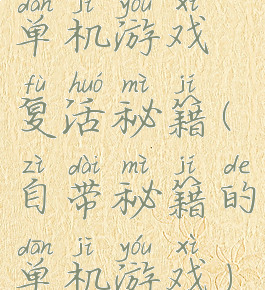 dān jī yóu xì
单机游戏
fù huó mì jí
复活秘籍(
zì dài mì jí de
自带秘籍的
dān jī yóu xì
单机游戏)